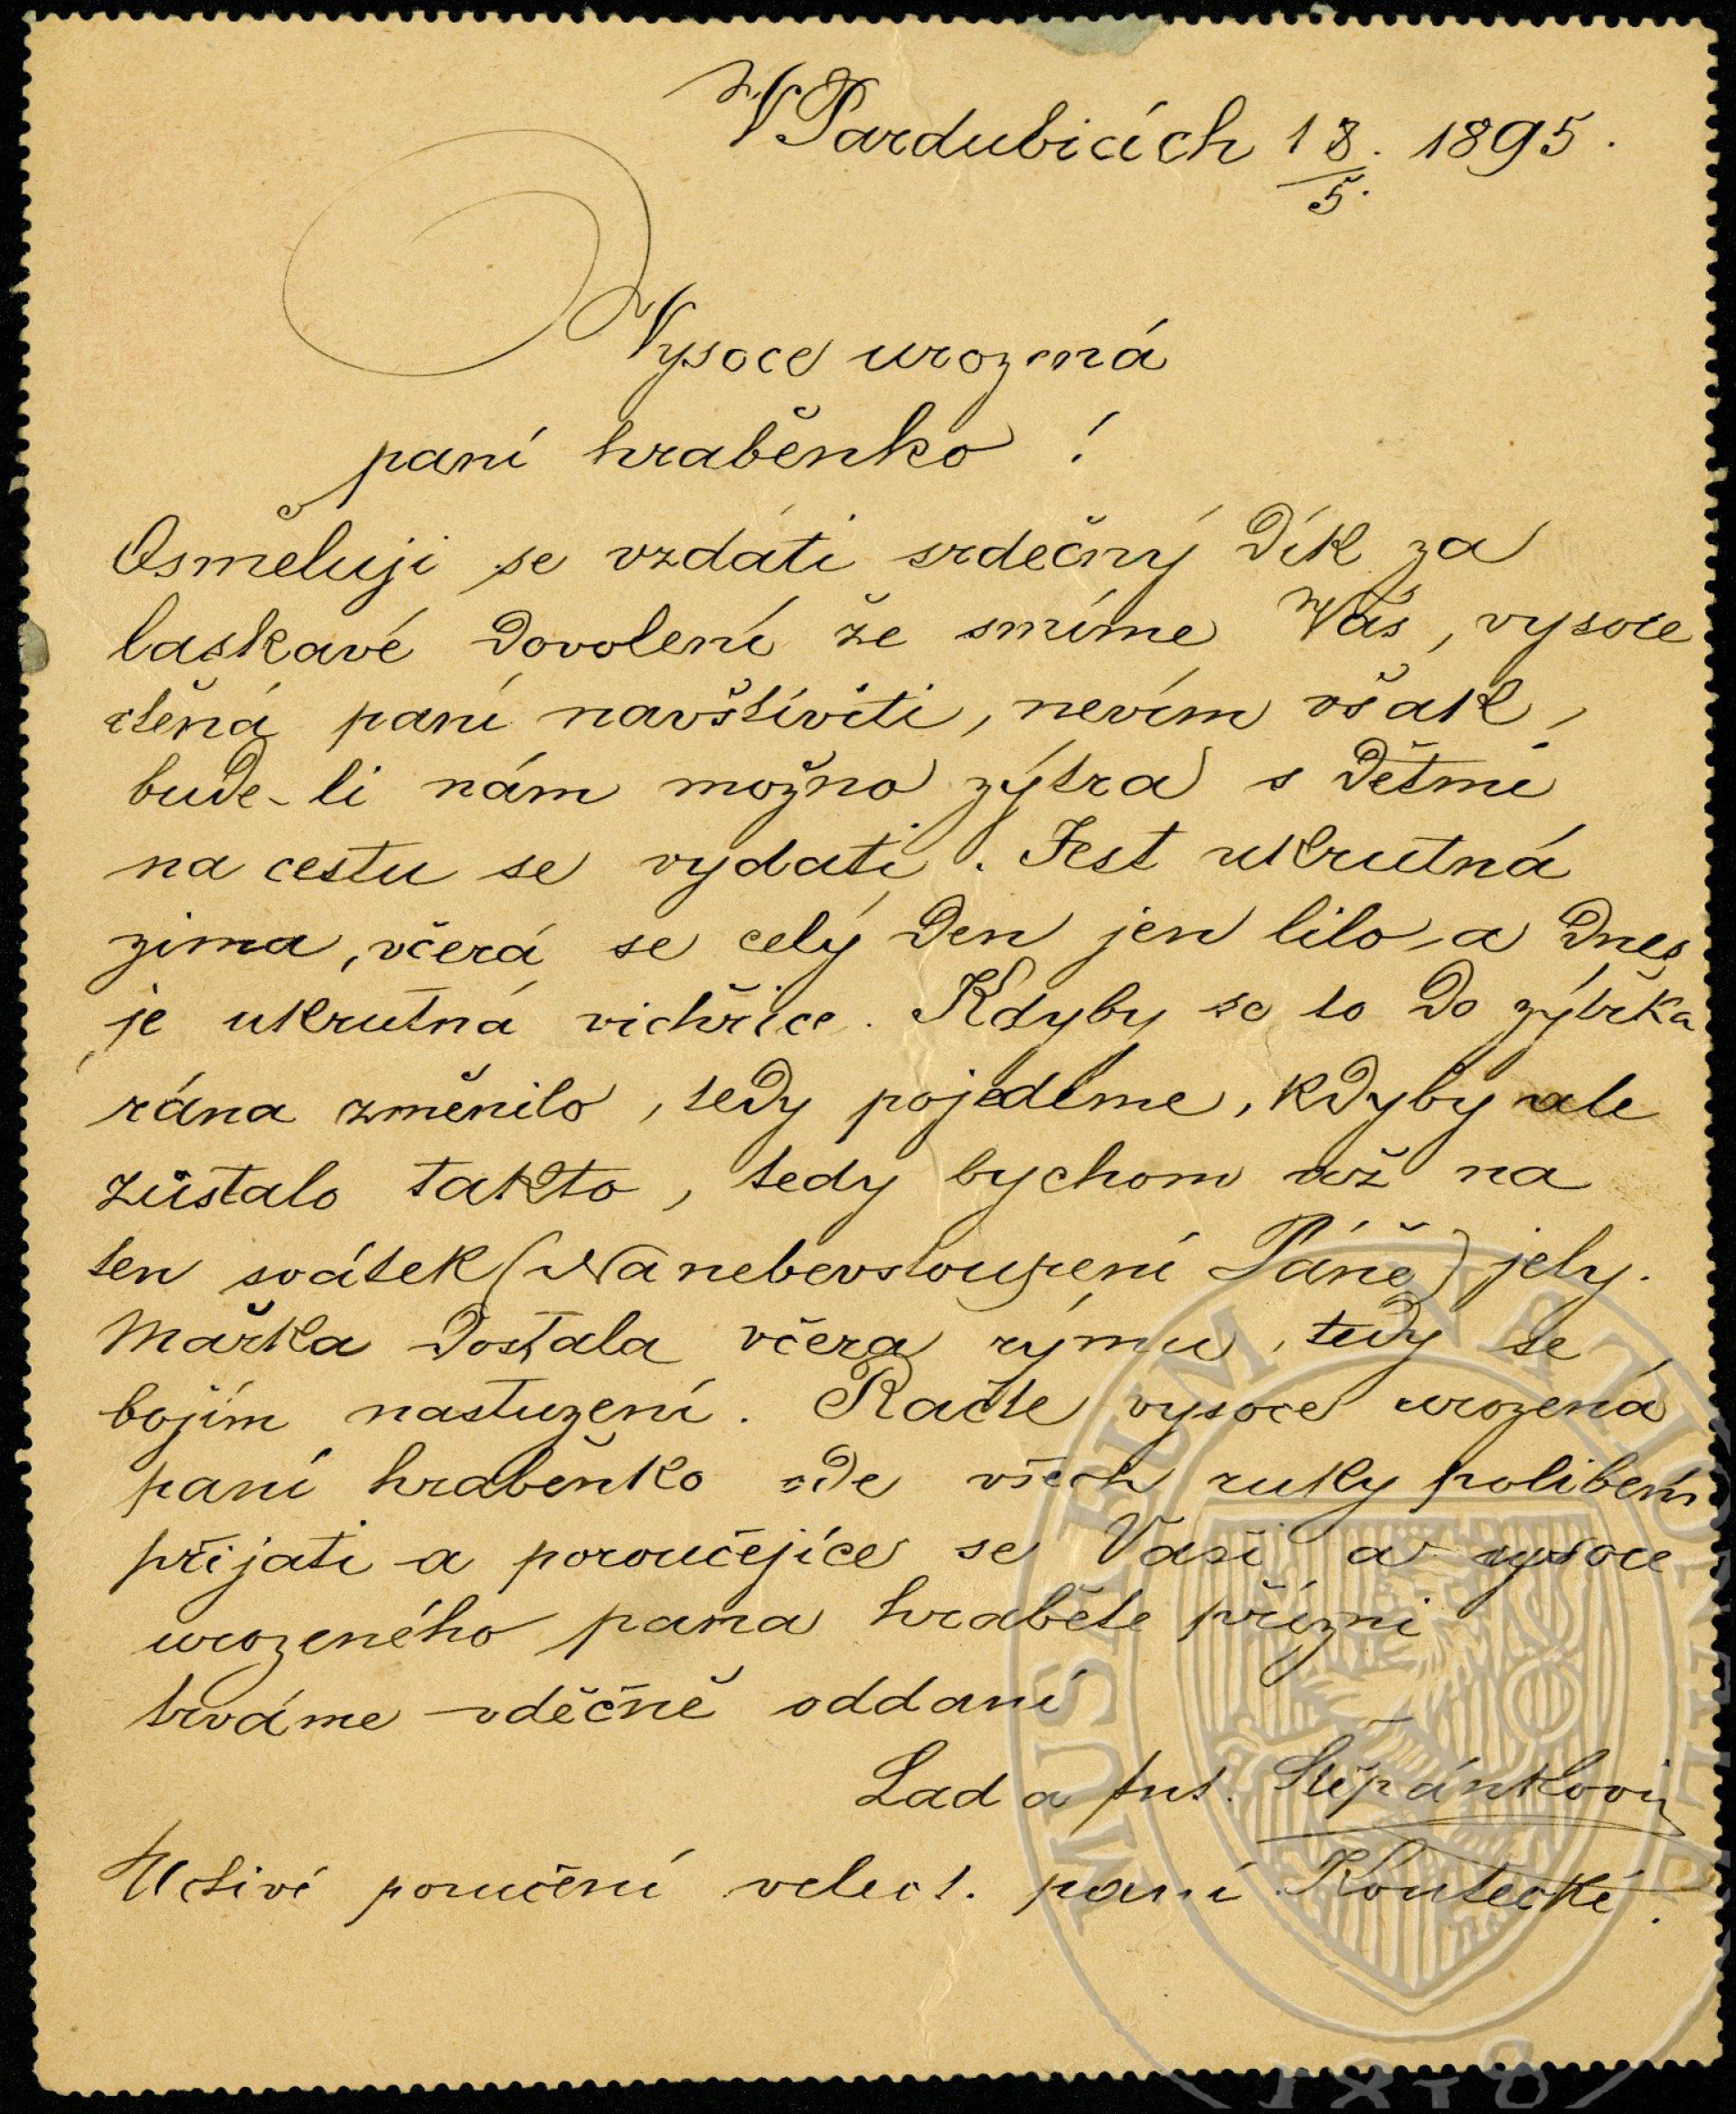 V Pardubicích 18./5. 1895.
Vysoce urozená
paní hraběnko!
Osměluji se vzdáti srdečný dík za
laskavé dovolení že smíme Vás, vysoce
ctěná paní navštíviti, nevím však,
bude-li nám možno zýtra s dětmi
na cestu se vydati. Jest ukrutná
zima, včerá se celý den jen lilo a dnes
je ukrutná vichřice. Kdyby se to do zýtřka
rána změnilo, tedy pojedeme, kdyby ale
zůstalo takto, tedy bychom až na
ten svátek (Na nebevstoupení Páně) jely.
Mařka dostala včera rýmu, tedy se
bojím nastuzení. Račte vysoce urozená
paní hraběnko ode všech ruky políbení
přijati a poroučejíce se Vaší a vysoce
urozeného pana hraběte přízni
trváme vděčně oddaní
Lad a Ant. Štěpánkovi
Uctivé poručení velect. paní Koutecké.
MUSAEUM NATIONALE
1818